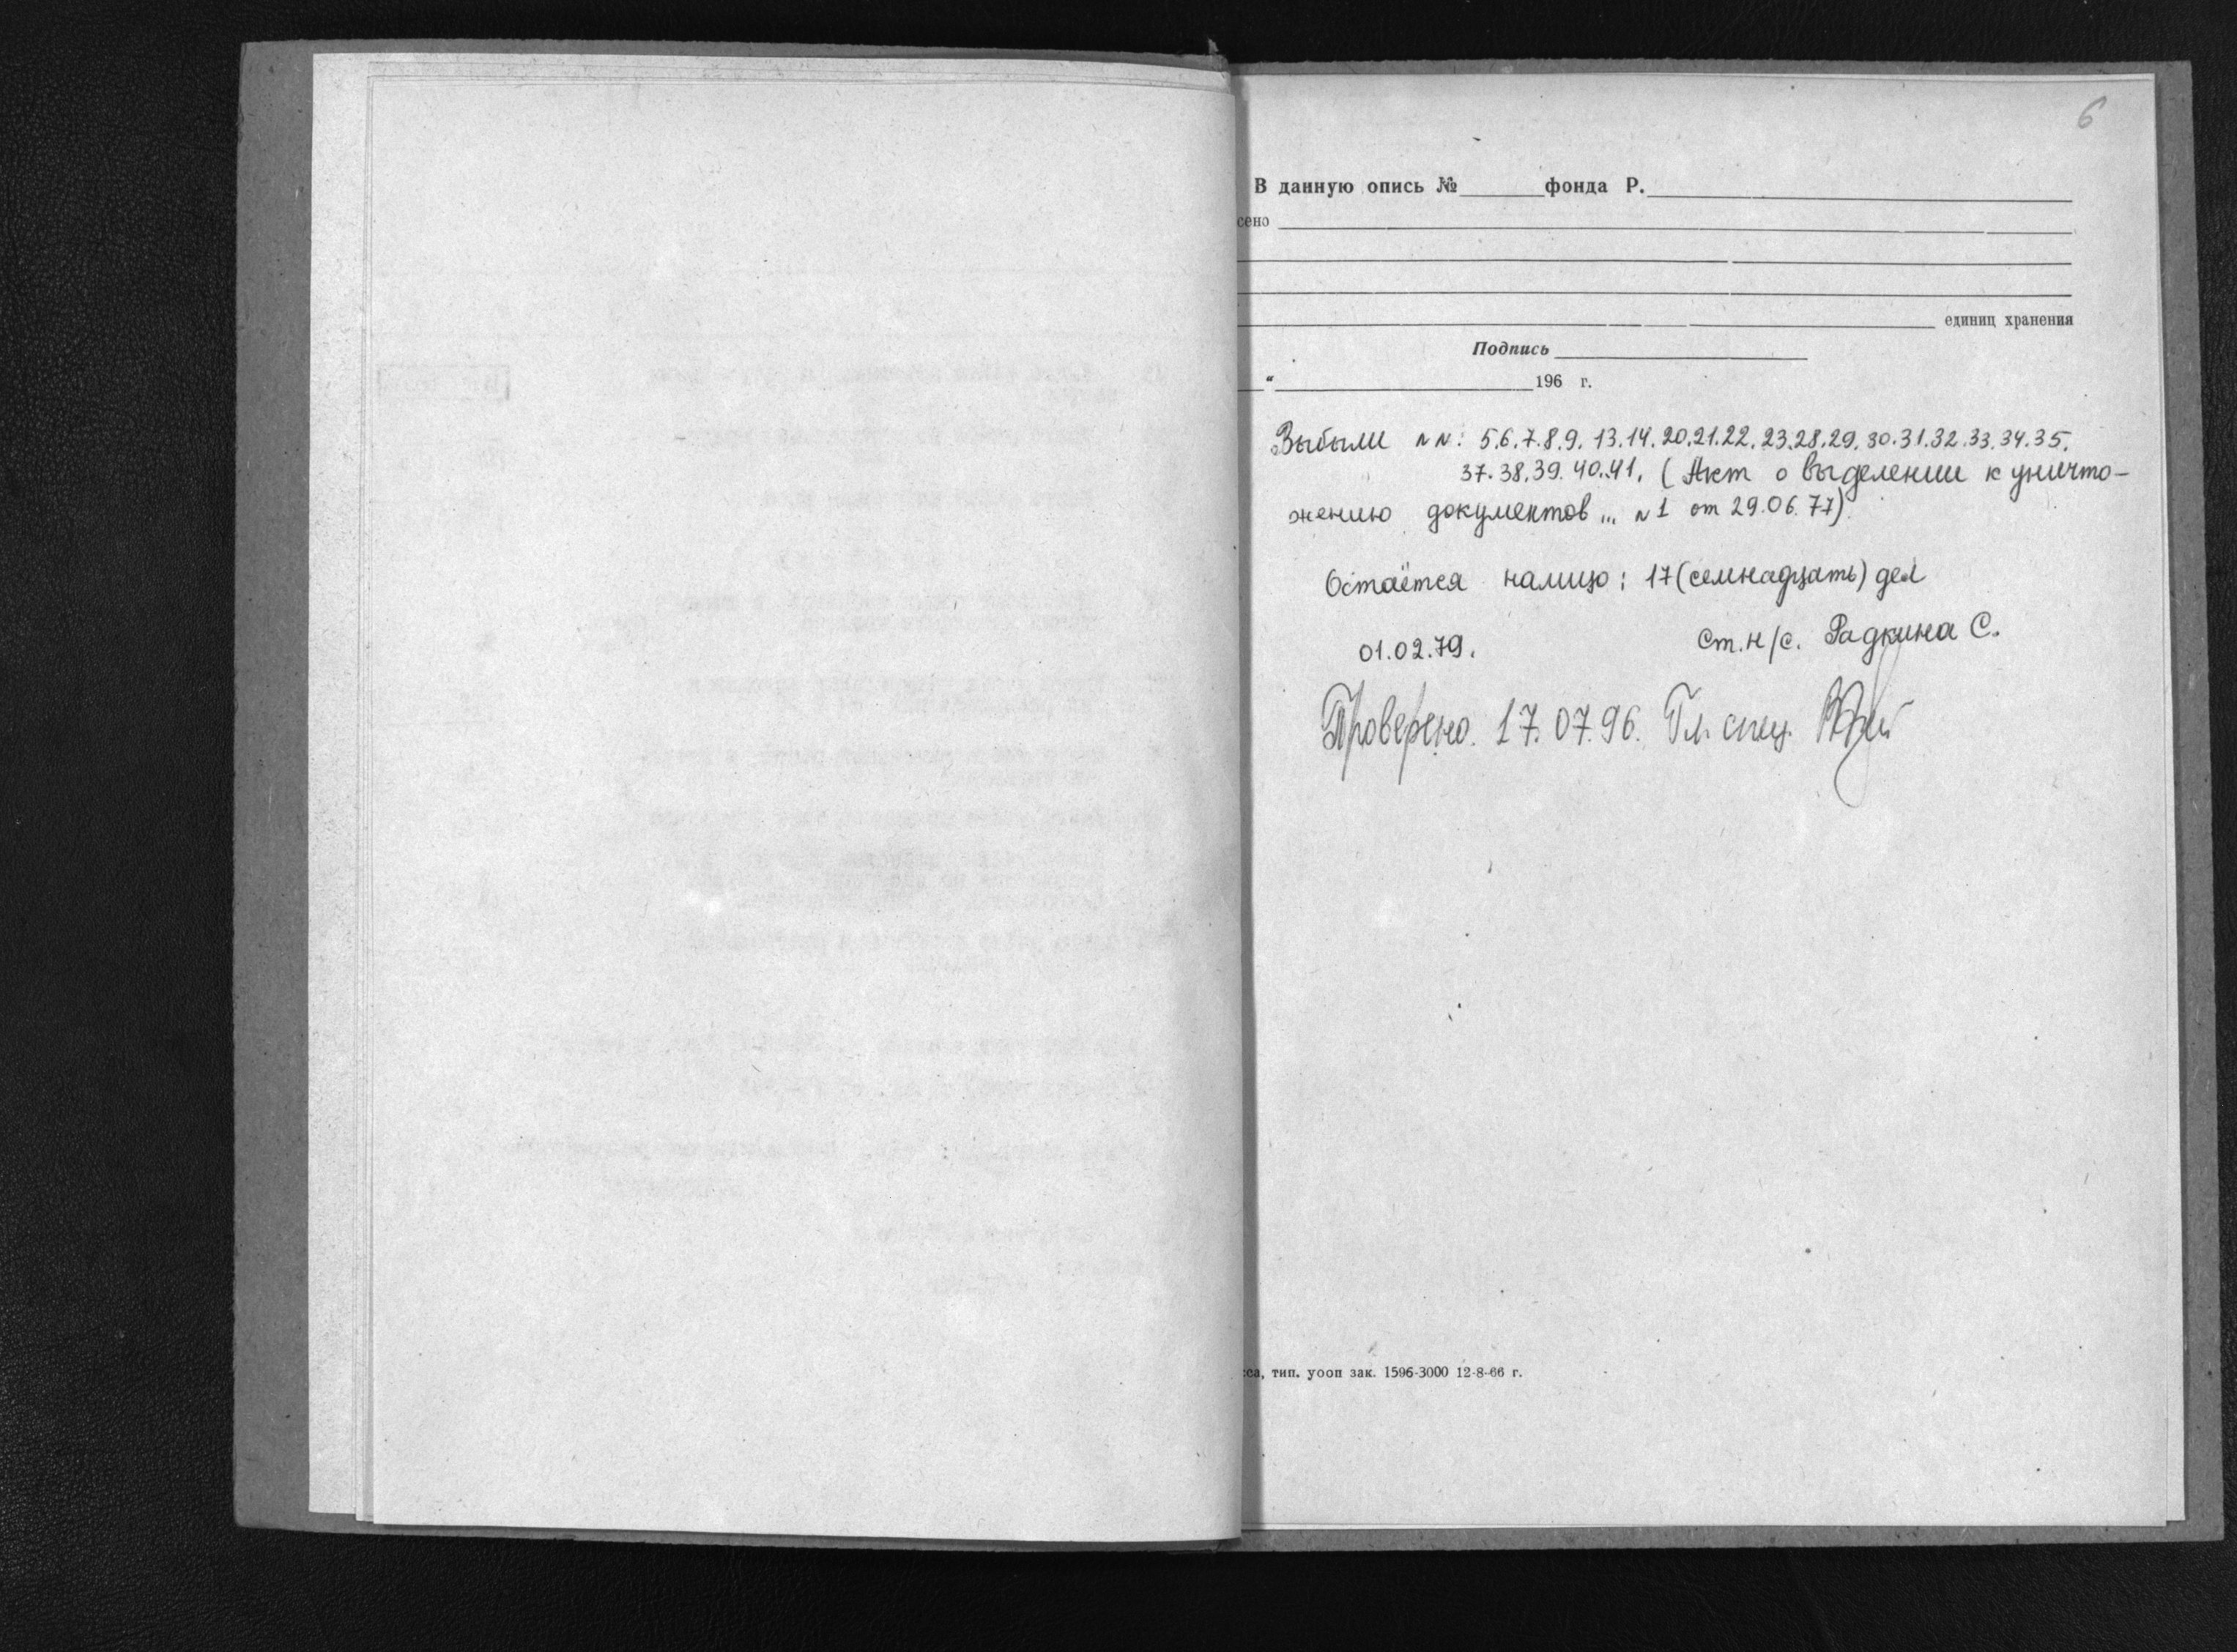 6
В данную опись № фонда Р.
сено
единиц хранения
Подпись
“ 196 г.
Выбыли NN: 5.6.7.8.9. 13.14. 20.21.22. 23.28.29. 30.31.32.33.34.35.
37.38.39.40.41. (Акт о выделении к уничто-
жению документов... N1 от 29.06.77).
Остаётся налицо: 17 (семнадцать) дел
01.02.79. Ст. н/с. Радкина С.
Проверено. 17.07.96. Гл. спец.
са, тип. уооп зак. 1596-3000 12-8-66 г.